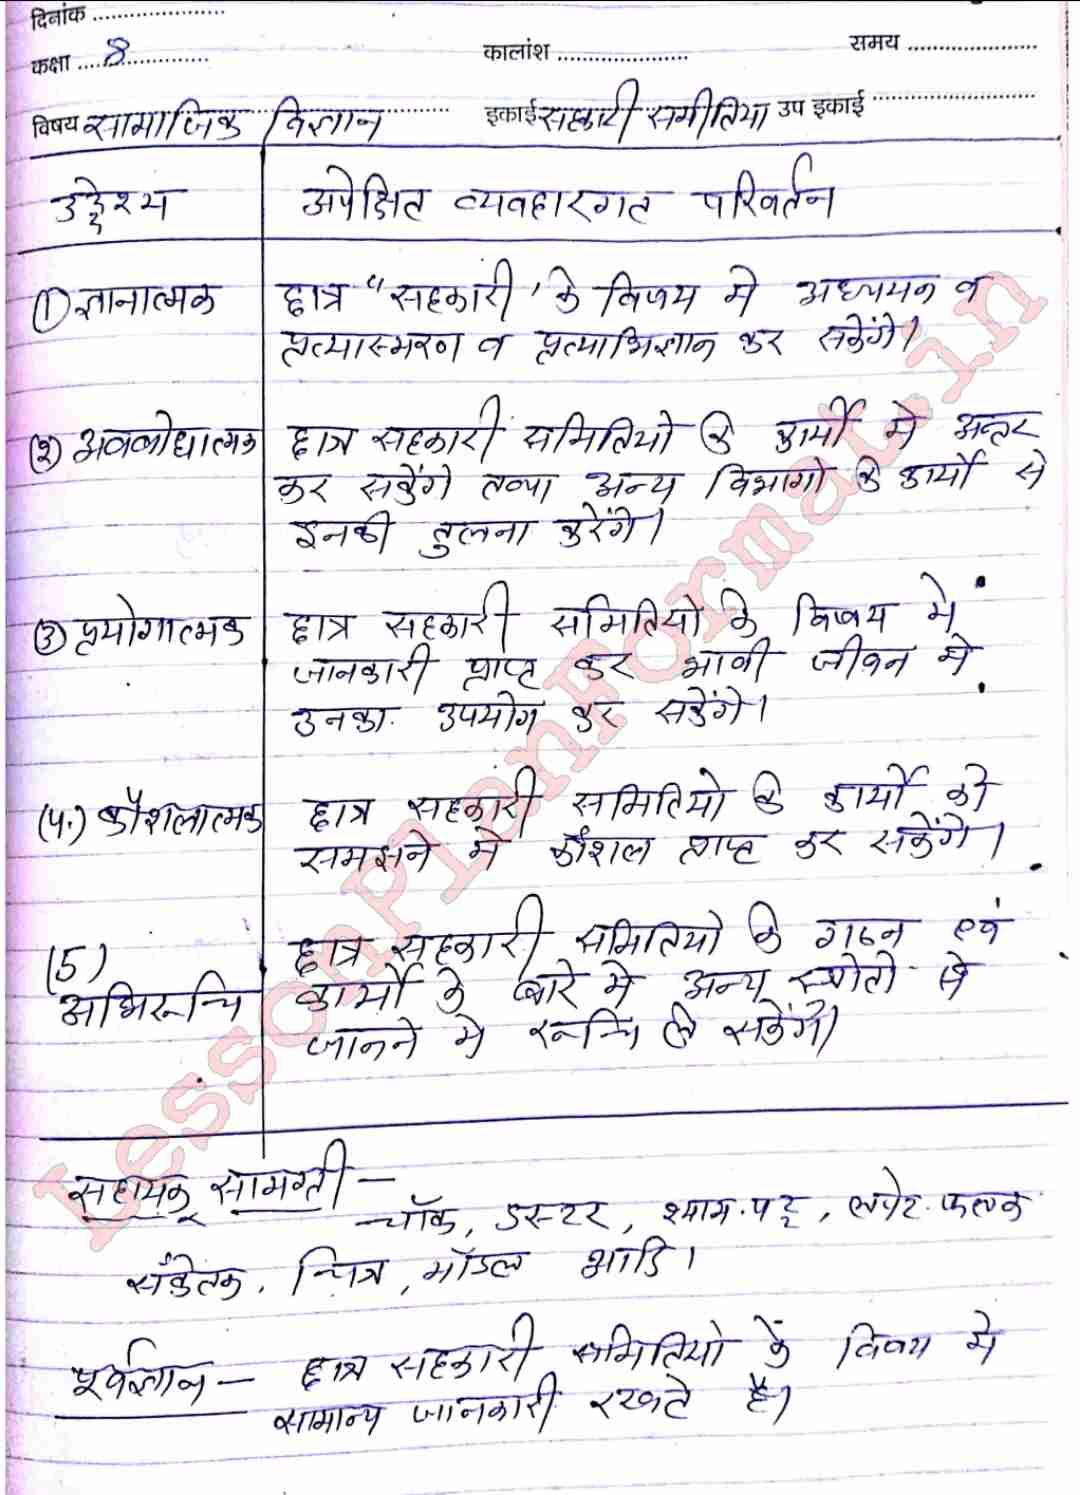 दिनांक ........................
कक्षा ....8.................. कालांश ........................ समय ........................
विषय सामाजिक विज्ञान इकाई सहकारी समीतिया उप इकाई ........................
उद्देश्य अपेक्षित व्यवहारगत परिवर्तन
(1) ज्ञानात्मक छात्र "सहकारी' के विषय मे अध्ययन व
प्रत्यास्मरण व प्रत्याभिज्ञान कर सकेंगे।
(2) अवबोधात्मक छात्र सहकारी समितियो के कार्यो मे अन्तर
कर सकेंगे तथा अन्य विभागो के कार्यो से
इनकी तुलना करेंगे।
(3) प्रयोगात्मक छात्र सहकारी समितियो के विषय मे
जानकारी प्राप्त कर भावी जीवन मे
उनका उपयोग कर सकेंगे।
(4.) कौशलात्मक छात्र सहकारी समितियो के कार्यो को
समझने मे कौशल प्राप्त कर सकेंगे।
(5)
अभिरूचि छात्र सहकारी समितियो के गठन एवं
कार्यो के बारे मे अन्य स्त्रोतो से
जानने मे रूचि ले सकेंगे।
सहायक सामग्री –
चॉक, डस्टर, श्याम.पट्ट, लपेट.फलक
संकेतक, चित्र, मॉडल आदि।
पूर्वज्ञान – छात्र सहकारी समितियो के विषय मे
सामान्य जानकारी रखते है।
LessonPlanFormat.in